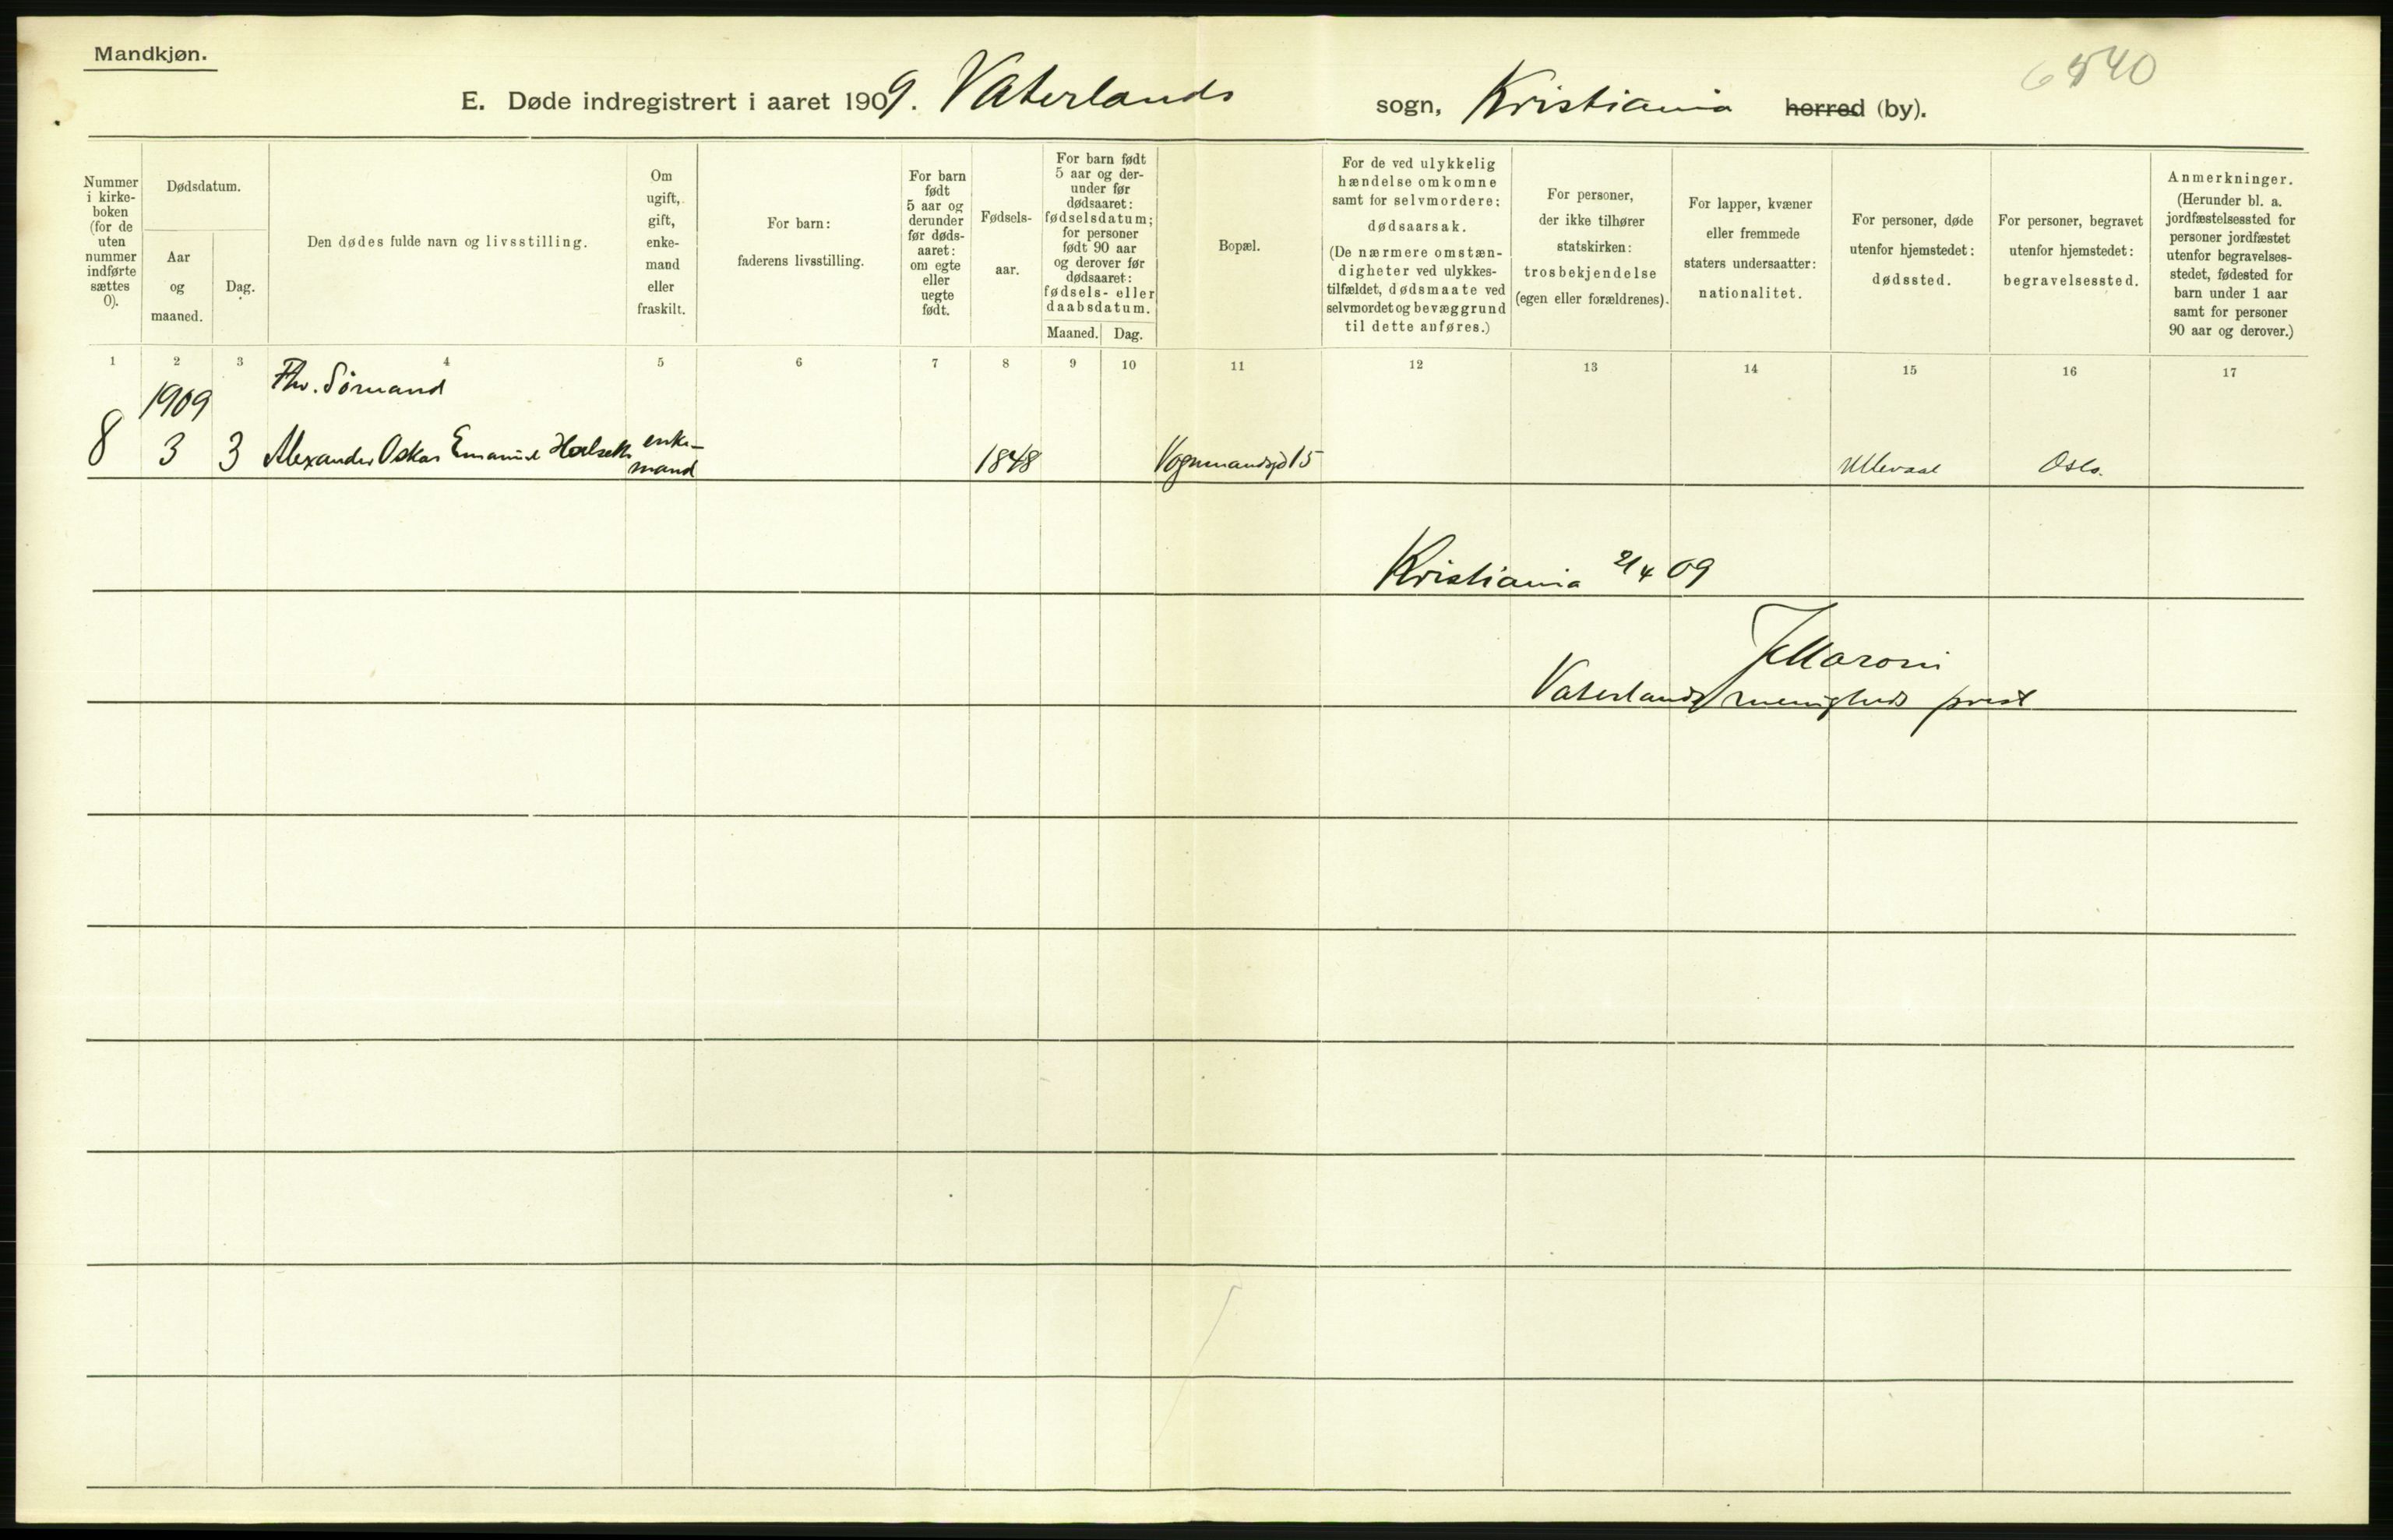 Mandkjøn.
E. Døde indregistrert i aaret 1909. Vaterlands sogn, Kristiania herred (by).
Nummer
i kirke-
boken
(for de
uten
nummer
indførte
sættes
0).
Dødsdatum.
Aar
og
maaned.
Dag.
Den dødes fulde navn og livsstilling.
Om
ugift,
gift,
enke-
mand
eller
fraskilt.
For barn:
faderens livsstilling.
For barn
født
5 aar og
derunder
før døds-
aaret:
om egte
eller
uegte
født.
Fødsels-
aar.
For barn født
5 aar og der-
under før
dødsaaret:
fødselsdatum;
for personer
født 90 aar
og derover før
dødsaaret:
fødsels- eller
daabsdatum.
Maaned. Dag.
Bopæl.
For de ved ulykkelig
hændelse omkomne
samt for selvmordere:
dødsaarsak.
(De nærmere omstæn-
digheter ved ulykkes-
tilfældet, dødsmaate ved
selvmordet og bevæggrund
til dette anføres.)
For personer,
der ikke tilhører
statskirken:
trosbekjendelse
(egen eller forældrenes).
For lapper, kvæner
eller fremmede
staters undersaatter:
nationalitet.
For personer, døde
utenfor hjemstedet:
dødssted.
For personer, begravet
utenfor hjemstedet:
begravelsessted.
Anmerkninger.
(Herunder bl. a.
jordfæstelsessted for
personer jordfæstet
utenfor begravelses-
stedet, fødested for
barn under 1 aar
samt for personer
90 aar og derover.)
1 2 3 4 5 6 7 8 9 10 11 12 13 14 15 16 17
1909 Fhv. Sømand
8 3 3 Alexander Oskar Emanuel enke- 1848 Vognmandsgd 15 Ullevaal Oslo.
mand
Kristiania 21/4 09
Maroni
Vaterlands menigheds prest